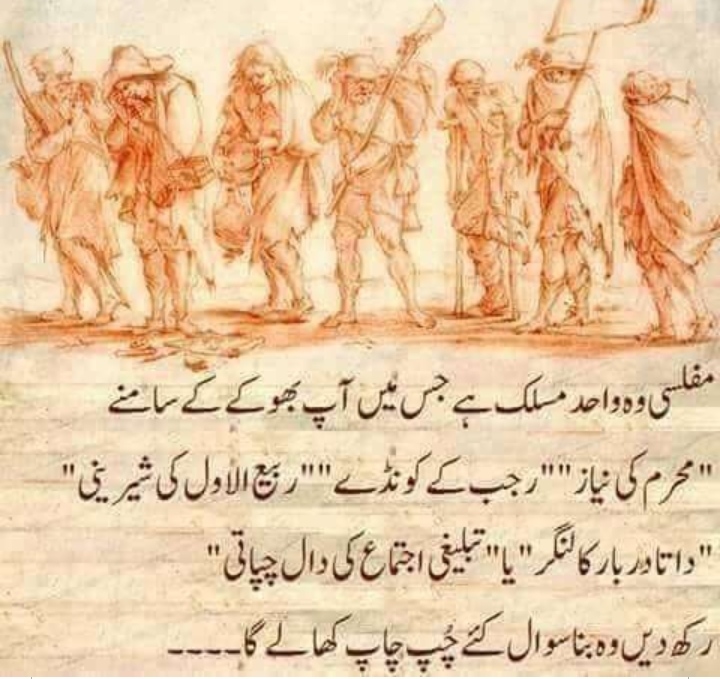 مفلسی وہ واحد مسلک ہے جس میں آپ بھوکے کے سامنے
"محرم کی نیاز" "رجب کے کونڈے" "ربیع الاول کی شیرینی"
"داتا دربار کا لنگر" یا "تبلیغی اجتماع کی دال چپاتی"
رکھ دیں وہ بنا سوال کئے چُپ چاپ کھا لے گا۔۔۔۔